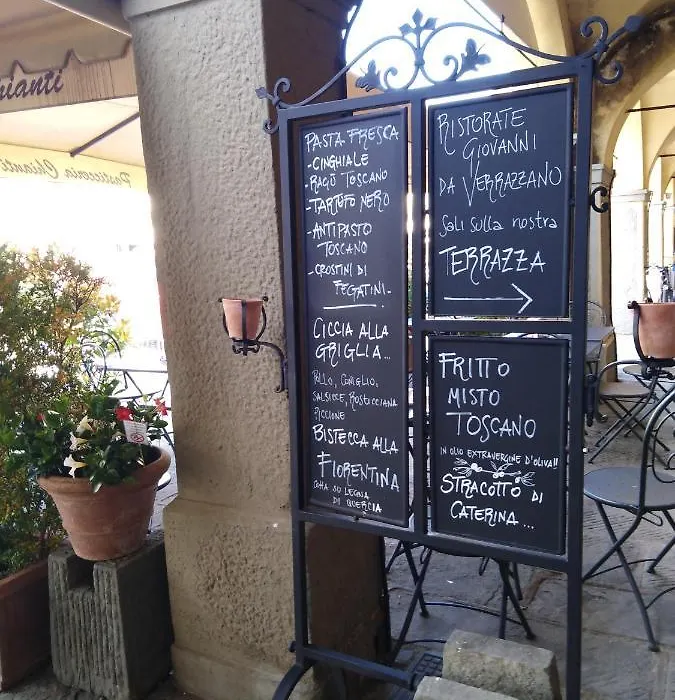 ianti
Pasticceria Chianti
PASTA FRESCA
-CINGHIALE
-RAGÙ TOSCANO
-TARTUFO NERO
-ANTIPASTO
TOSCANO
-CROSTINI DI
FEGATINI-
CICCIA ALLA
GRIGLIA...
POLLO, CONIGLIO,
SALSICCE, ROSTICCIANA
PICCIONE
BISTECCA ALLA
FIORENTINA
COTTA SU LEGNA
DI QUERCIA
RISTORATE
GIOVANNI
DA VERRAZZANO
Sali sulla nostra
TERRAZZA
FRITTO
MISTO
TOSCANO
IN OLIO EXTRAVERGINE D'OLIVA!!
STRACOTTO DI
CATERINA...